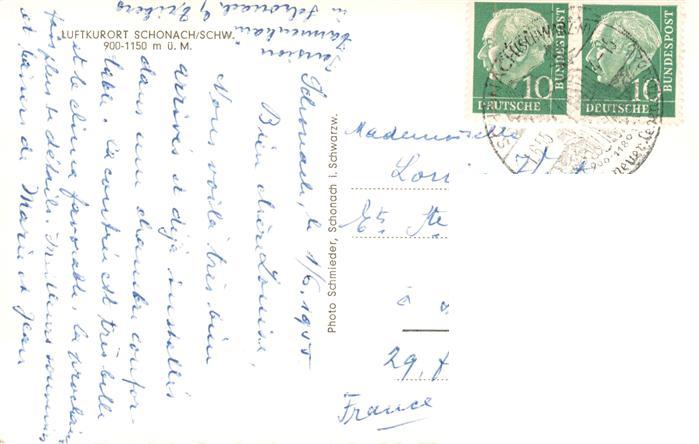 LUFTKURORT SCHONACH/SCHW.
900-1150 m ü. M.
Pension
Tannenhain
in Schonach b/Triberg
Schonach, le 1/6.1955
Bien chère Louise,
Nous voilà très bien
arrivés et déjà installés
dans une chambre confor-
table. La contrée est très belle
et le climat favorable, la prochaine
fois plus de détails. Meilleurs souvenirs
et baisers de Marie et Jean
Photo Schmieder, Schonach i. Schwarzw.
10
DEUTSCHE
BUNDESPOST
10
DEUTSCHE
BUNDESPOST
Mademoiselle
Loui
Ets Ste
à
29,
France